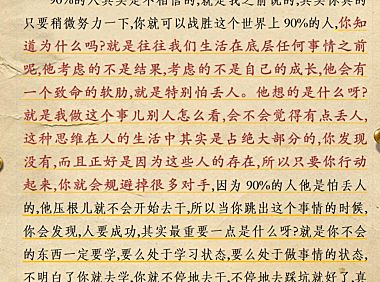 90%的人其实是不相信的,就是我之前说的,其实你真的
只要稍微努力一下,你就可以战胜这个世界上90%的人,你知
道为什么吗?就是往往我们生活在底层任何事情之前
呢,他考虑的不是结果,考虑的不是自己的成长,他会有
一个致命的软肋,就是特别怕丢人。他想的是什么呀?
就是我做这个事儿别人怎么看,会不会觉得有点丢人,
这种思维在人的生活中其实是占绝大部分的,你发现
没有,而且正好是因为这些人的存在,所以只要你行动
起来,你就会规避掉很多对手,因为90%的人他是怕丢人
的,他压根儿就不会开始去干,所以当你跳出这个事情的时候,
你会发现,人要成功,其实最重要一点是什么呀?就是你不会
的东西一定要学,要么处于学习状态,要么处于做事情的状态,
不明白了你就去学,你就不停地去干,不停地去踩坑就好了,真